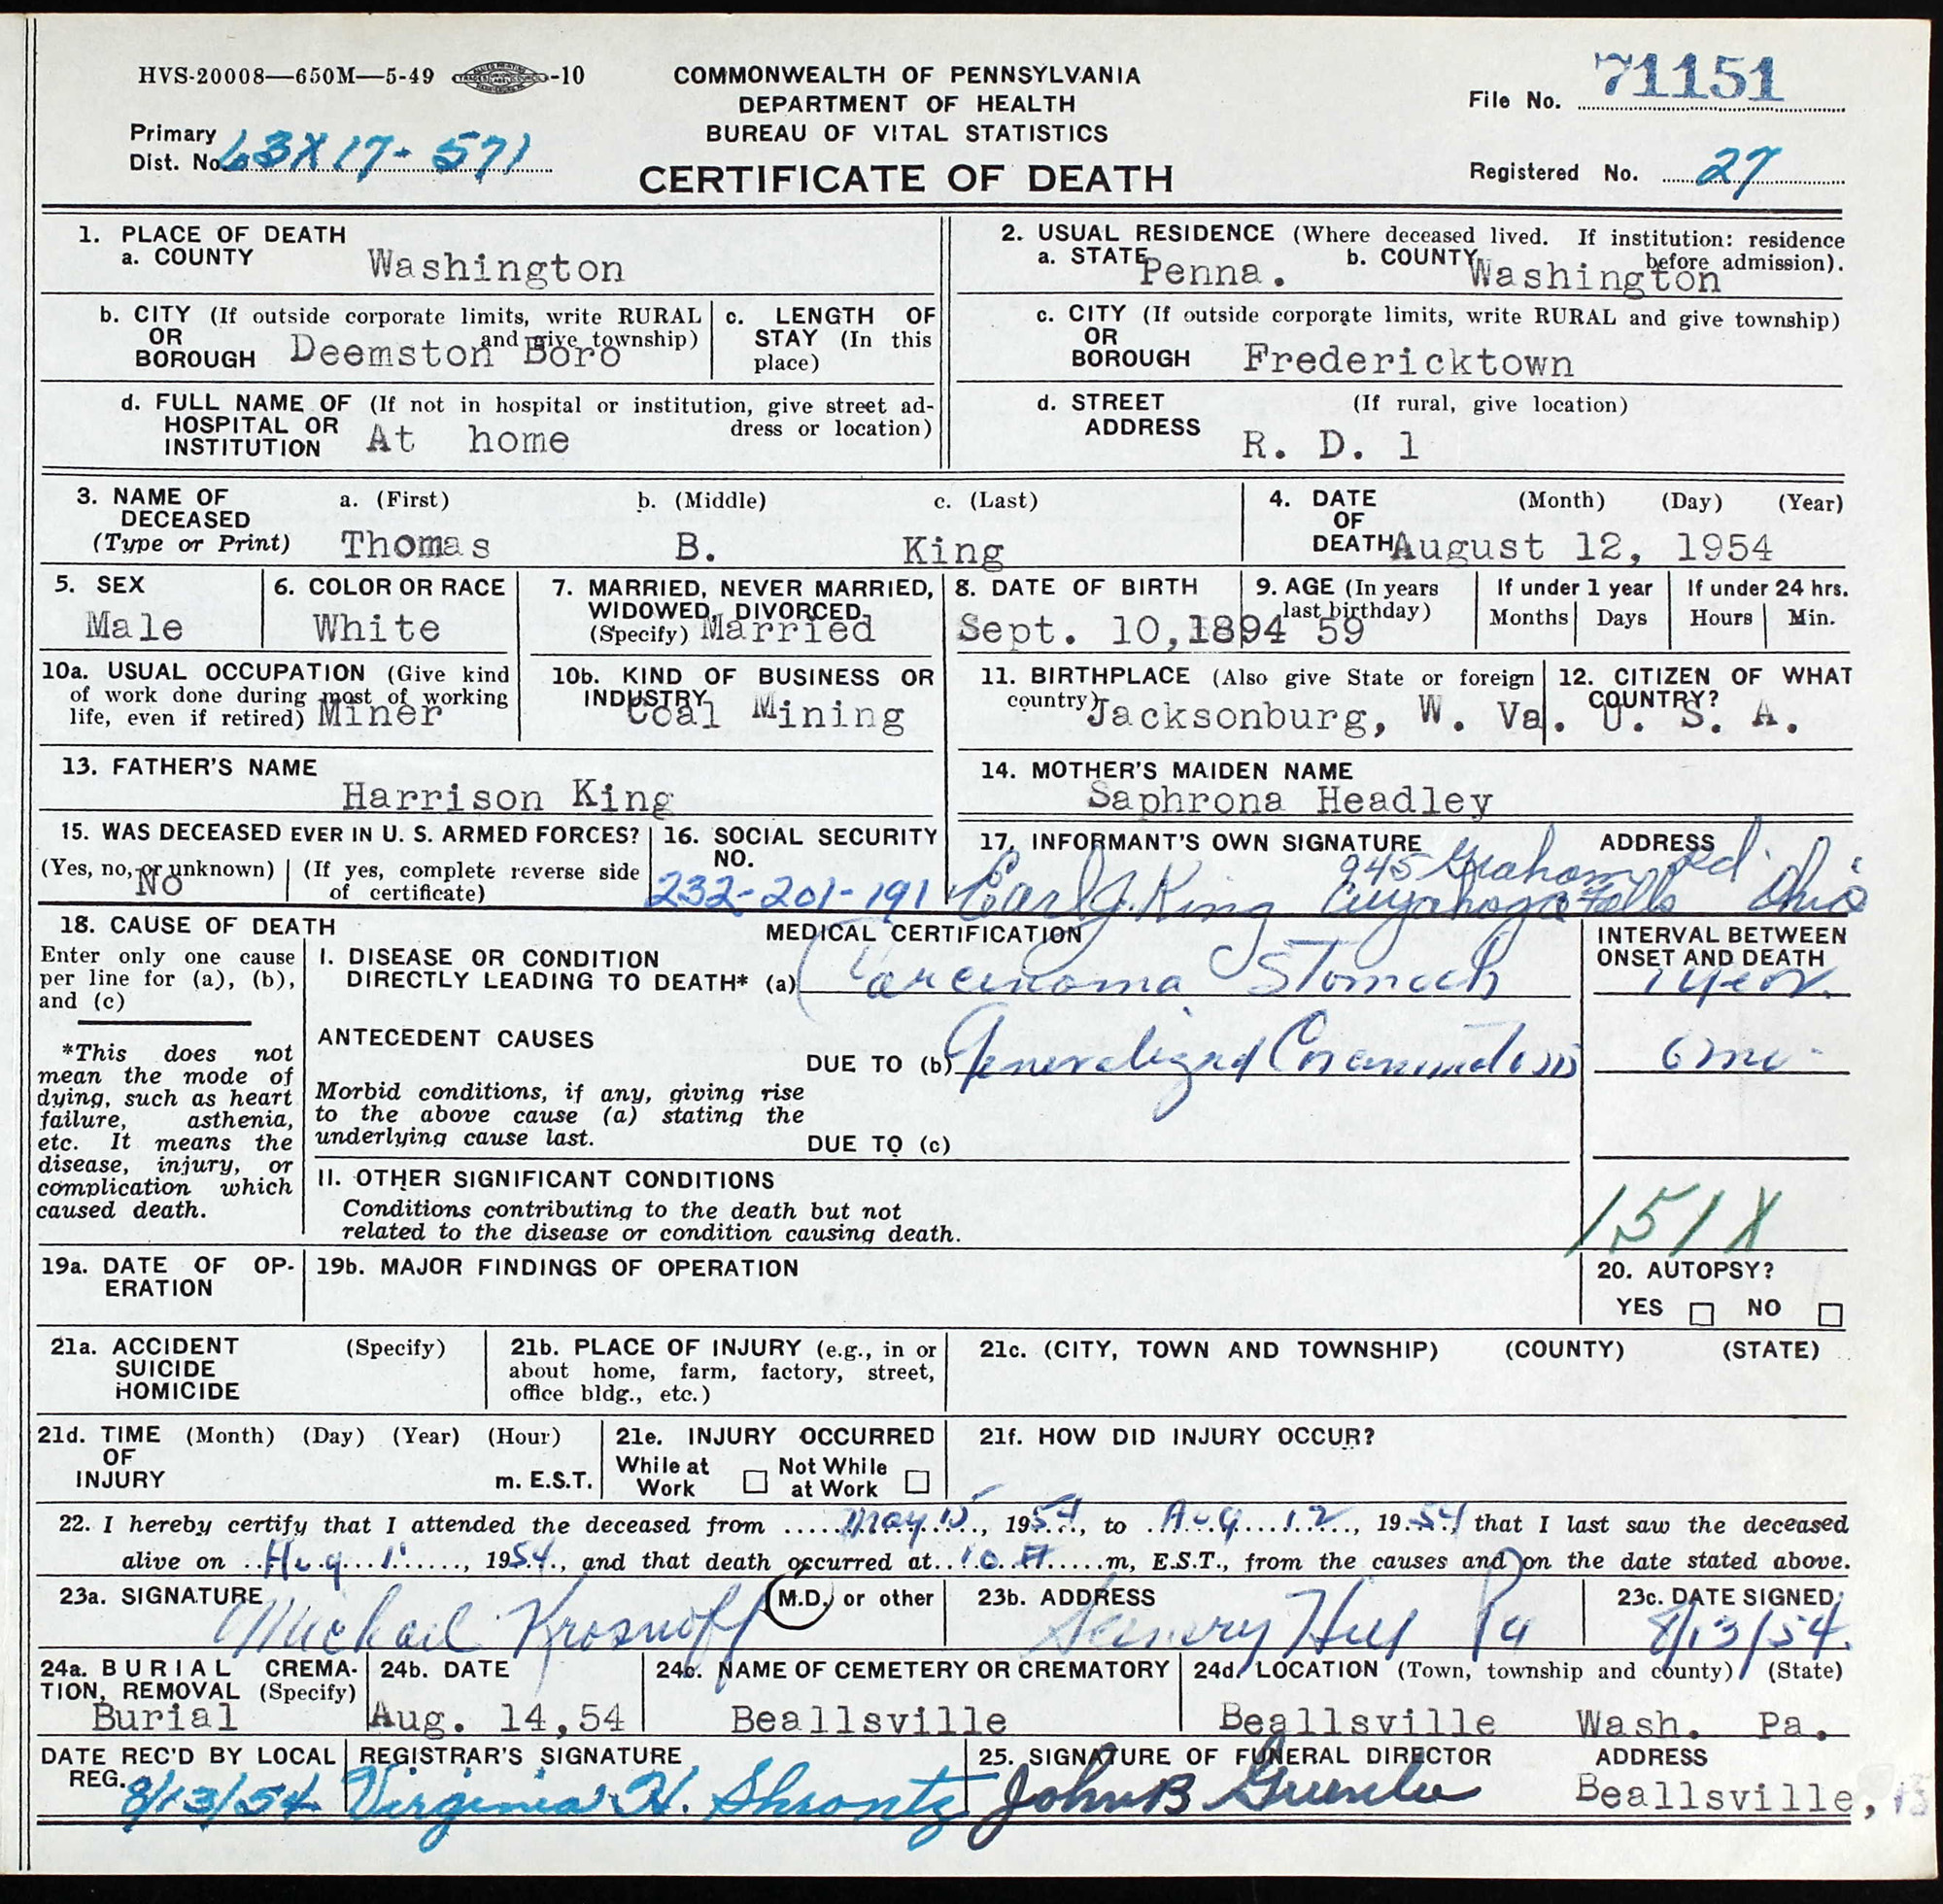 HVS-20008—650M—5-49 -10
COMMONWEALTH OF PENNSYLVANIA
DEPARTMENT OF HEALTH
BUREAU OF VITAL STATISTICS
CERTIFICATE OF DEATH
File No. 71151
Primary
Dist. No. 63X17-571
Registered No. 27
1. PLACE OF DEATH
a. COUNTY Washington
2. USUAL RESIDENCE (Where deceased lived. If institution: residence
before admission).
a. STATE Penna. b. COUNTY Washington
b. CITY (If outside corporate limits, write RURAL
OR and give township)
BOROUGH Deemston Boro
c. LENGTH OF
STAY (In this
place)
c. CITY (If outside corporate limits, write RURAL and give township)
OR
BOROUGH Fredericktown
d. FULL NAME OF (If not in hospital or institution, give street ad-
HOSPITAL OR dress or location)
INSTITUTION At home
d. STREET (If rural, give location)
ADDRESS R. D. 1
3. NAME OF a. (First) b. (Middle) c. (Last)
DECEASED
(Type or Print) Thomas B. King
4. DATE (Month) (Day) (Year)
OF
DEATH August 12, 1954
5. SEX
Male
6. COLOR OR RACE
White
7. MARRIED, NEVER MARRIED,
WIDOWED, DIVORCED
(Specify) Married
8. DATE OF BIRTH
Sept. 10,1894
9. AGE (In years
last birthday)
59
If under 1 year
Months Days
If under 24 hrs.
Hours Min.
10a. USUAL OCCUPATION (Give kind
of work done during most of working
life, even if retired) Miner
10b. KIND OF BUSINESS OR
INDUSTRY
Coal Mining
11. BIRTHPLACE (Also give State or foreign
country) Jacksonburg, W. Va.
12. CITIZEN OF WHAT
COUNTRY?
U. S. A.
13. FATHER'S NAME
Harrison King
14. MOTHER'S MAIDEN NAME
Saphrona Headley
15. WAS DECEASED EVER IN U. S. ARMED FORCES?
(Yes, no, or unknown) (If yes, complete reverse side
No of certificate)
16. SOCIAL SECURITY
NO.
232-201-191
17. INFORMANT'S OWN SIGNATURE ADDRESS
945 Graham Rd.
Earl J. King Cuyahoga Falls Ohio
18. CAUSE OF DEATH
Enter only one cause
per line for (a), (b),
and (c)
*This does not
mean the mode of
dying, such as heart
failure, asthenia,
etc. It means the
disease, injury, or
complication which
caused death.
MEDICAL CERTIFICATION
I. DISEASE OR CONDITION
DIRECTLY LEADING TO DEATH* (a) Carcinoma Stomach
ANTECEDENT CAUSES
DUE TO (b) Generalized
Morbid conditions, if any, giving rise
to the above cause (a) stating the
underlying cause last.
DUE TO (c)
II. OTHER SIGNIFICANT CONDITIONS
Conditions contributing to the death but not
related to the disease or condition causing death.
INTERVAL BETWEEN
ONSET AND DEATH
1 year.
6 mo.
151X
19a. DATE OF OP-
ERATION
19b. MAJOR FINDINGS OF OPERATION
20. AUTOPSY?
YES NO
21a. ACCIDENT (Specify)
SUICIDE
HOMICIDE
21b. PLACE OF INJURY (e.g., in or
about home, farm, factory, street,
office bldg., etc.)
21c. (CITY, TOWN AND TOWNSHIP) (COUNTY) (STATE)
21d. TIME (Month) (Day) (Year) (Hour)
OF
INJURY m. E.S.T.
21e. INJURY OCCURRED
While at Not While
Work at Work
21f. HOW DID INJURY OCCUR?
22. I hereby certify that I attended the deceased from May 15, 1954, to Aug 12, 1954, that I last saw the deceased
alive on Aug, 1954, and that death occurred at 10 A m, E.S.T., from the causes and on the date stated above.
23a. SIGNATURE (M.D.) or other
Michael Krosnoff
23b. ADDRESS
Scenery Hill Pa
23c. DATE SIGNED
8/13/54.
24a. BURIAL CREMA-
TION, REMOVAL (Specify)
Burial
24b. DATE
Aug. 14,54
24c. NAME OF CEMETERY OR CREMATORY
Beallsville
24d. LOCATION (Town, township and county) (State)
Beallsville Wash. Pa.
DATE REC'D BY LOCAL
REG. 8/13/54
REGISTRAR'S SIGNATURE
Virginia H. Shrontz
25. SIGNATURE OF FUNERAL DIRECTOR ADDRESS
John B Beallsville,